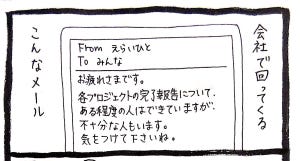 会社で回ってくる
こんなメール
From えらいひと
To みんな
お疲れさまです。
各プロジェクトの完了報告について、
ある程度の人はできていますが、
不十分な人もいます。
気をつけて下さいね。